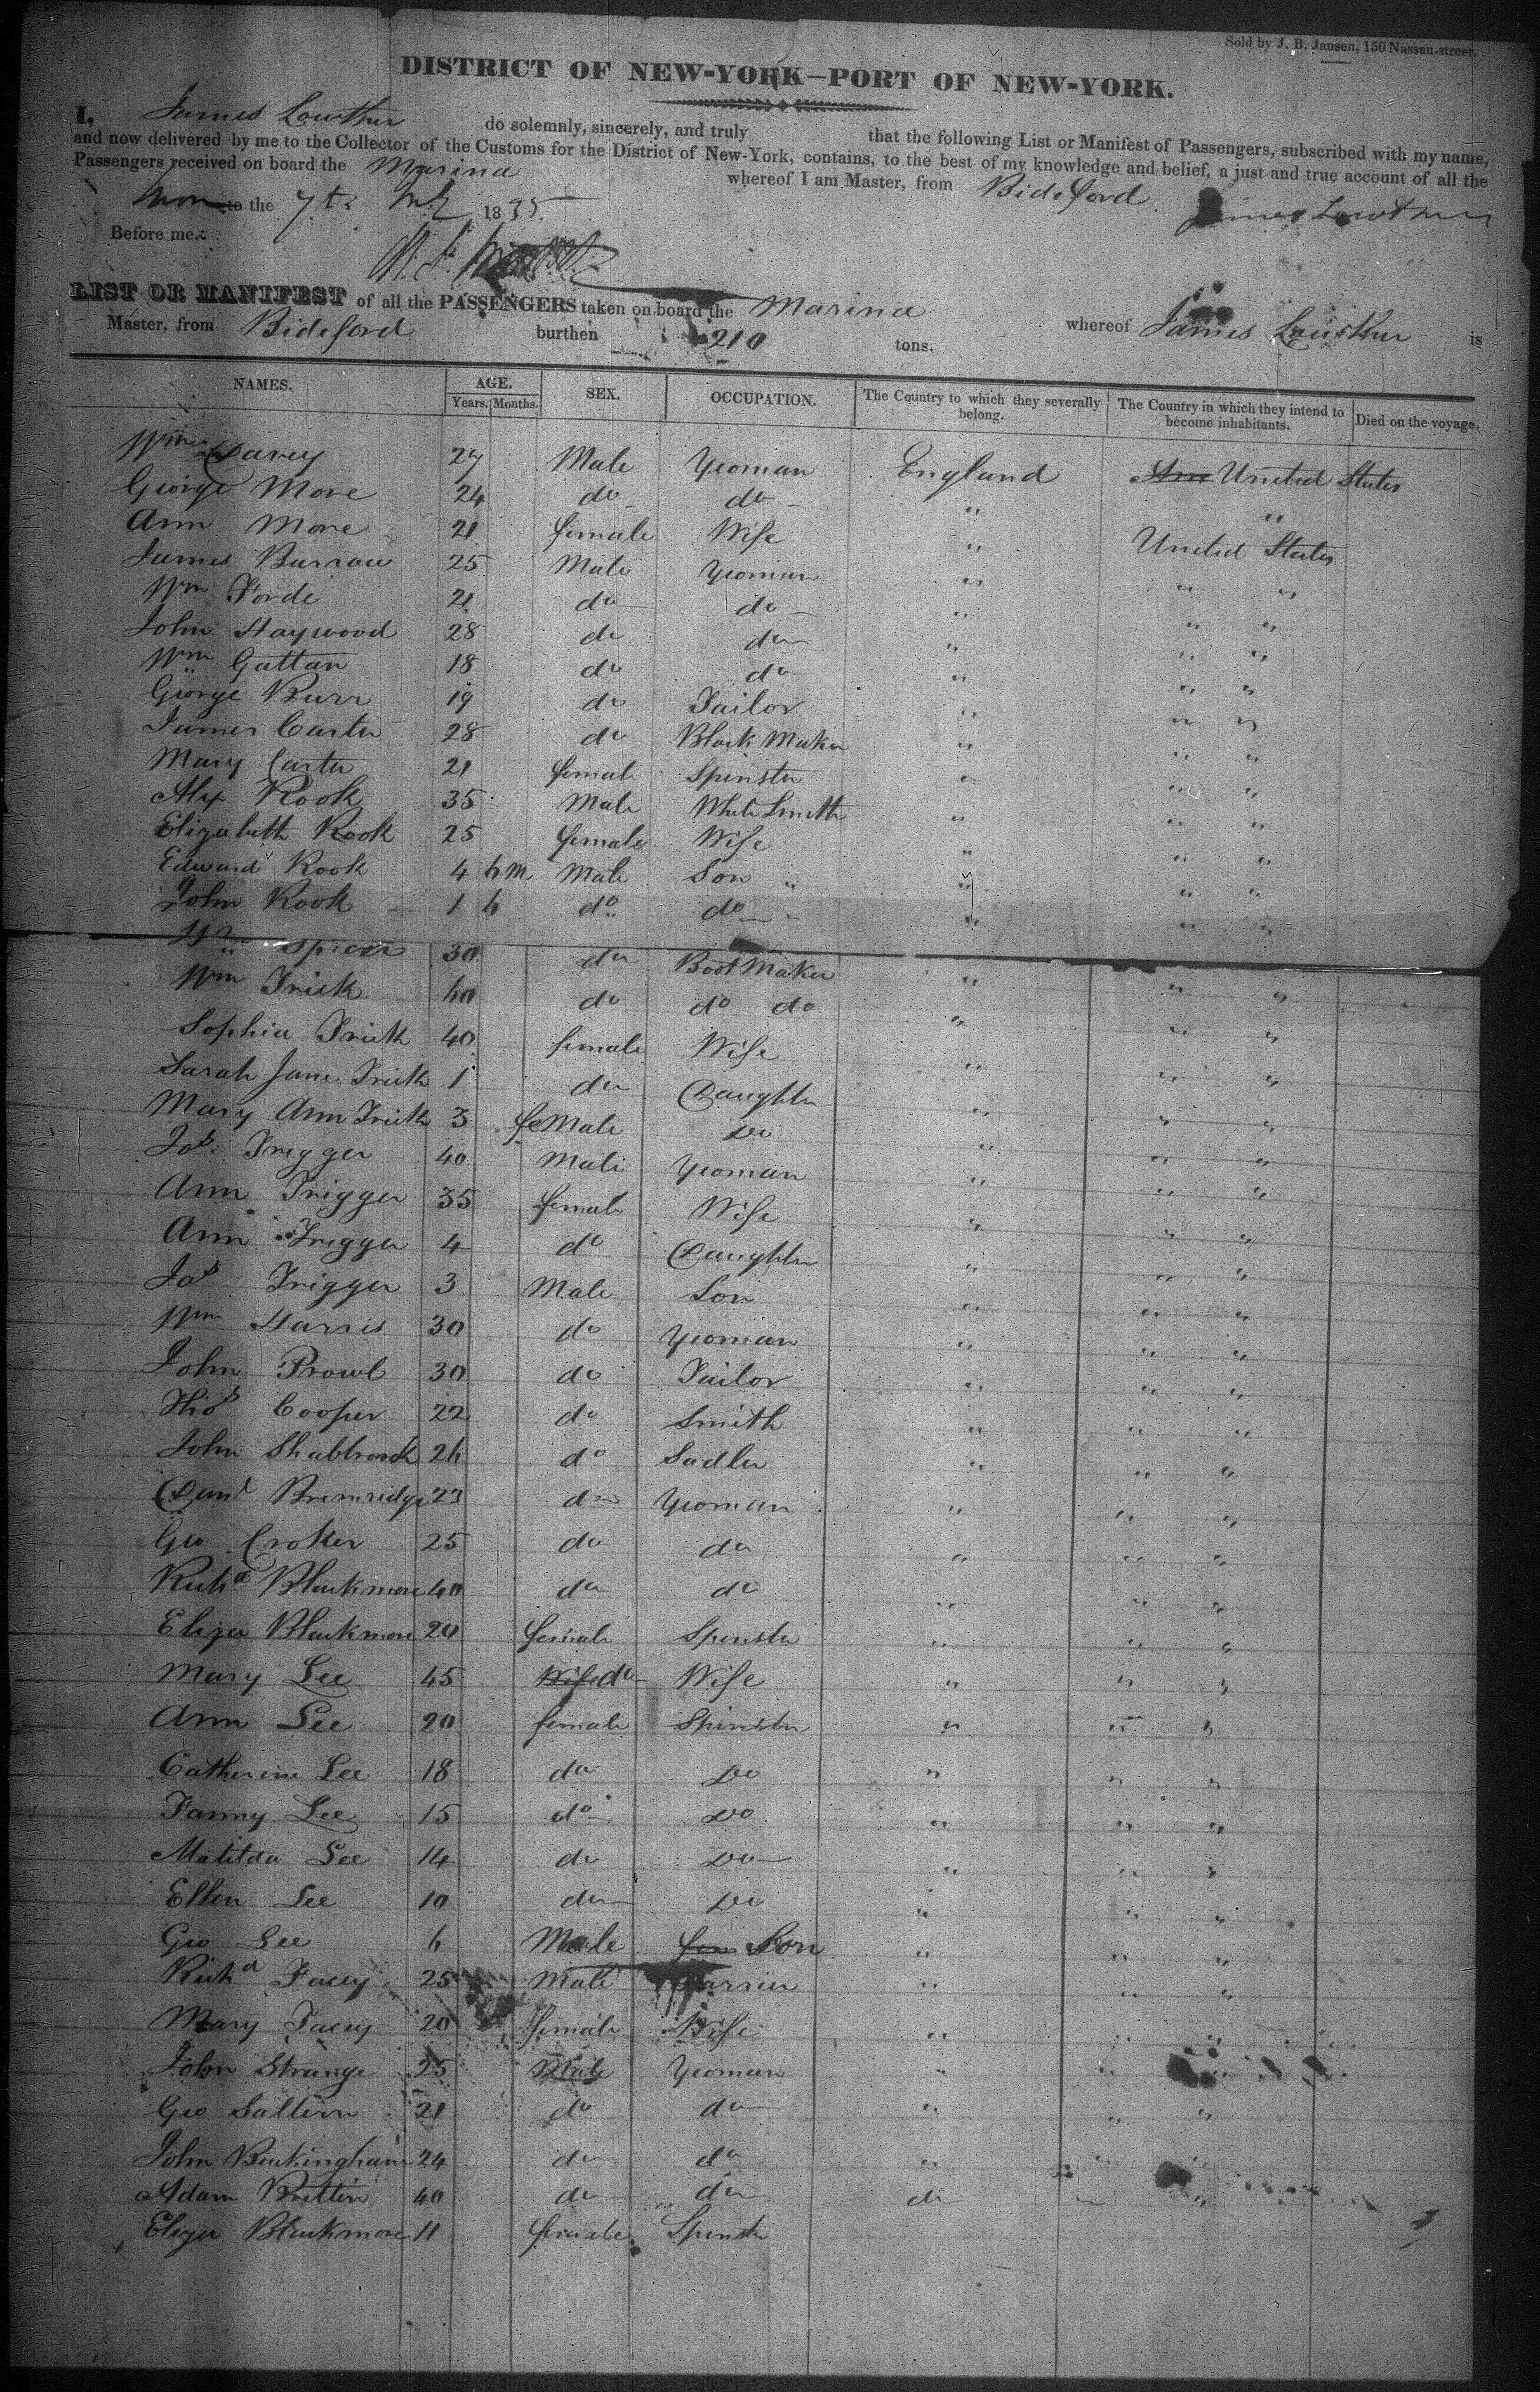 Sold by J. B. Jansen, 150 Nassau-street.
DISTRICT OF NEW-YORK—PORT OF NEW-YORK.
I, James Lowther do solemnly, sincerely, and truly that the following List or Manifest of Passengers, subscribed with my name,
and now delivered by me to the Collector of the Customs for the District of New-York, contains, to the best of my knowledge and belief, a just and true account of all the
Passengers received on board the Marina whereof I am Master, from Bideford
to the 7th 1835 James Lowther
Before me,
LIST OR MANIFEST of all the PASSENGERS taken on board the Marina whereof James Lowther is
Master, from Bideford burthen 210 tons.
NAMES. AGE. SEX. OCCUPATION. The Country to which they severally belong. The Country in which they intend to become inhabitants. Died on the voyage.
Years. Months.
Wm Davey 27 Male Yeoman England United States
George More 24 do do " "
Ann More 21 female Wife " United States
James Burrow 25 Male Yeoman " " "
Wm Forde 21 do do " " "
John Haywood 28 do do " " "
Wm Gattan 18 do do " " "
George Burr 19 do Tailor " " "
James Carter 28 do Block Maker " " "
Mary Carter 21 female Spinster " " "
Alex Rook 35 Male White Smith " " "
Elizabeth Rook 25 female Wife " " "
Edward Rook 4 6 m Male Son " " " "
John Rook 1 6 do do " " "
Wm Spicer 30 do Boot Maker " " "
Wm Trick 60 do do do " " "
Sophia Trick 40 female Wife " " "
Sarah Jane Trick 1 do Daughter " " "
Mary Ann Trick 3 feMale Do " " "
Jos. Trigger 40 Male Yeoman " " "
Ann Trigger 35 female Wife " " "
Ann Trigger 4 do Daughter " " "
Jas Trigger 3 Male Son " " "
Wm Harris 30 do Yeoman " " "
John Prowl 30 do Tailor " " "
Thos Cooper 22 do Smith " " "
John 26 do Sadler " " "
Danl Bremridge 23 do Yeoman " " "
Geo Croker 25 do do " " "
Richd Blackmore 40 do do " " "
Eliza Blackmore 20 female Spinster " " "
Mary Lee 45 Wife do Wife " " "
Ann Lee 20 female Spinster " " "
Catherine Lee 18 do Do " " "
Fanny Lee 15 do Do " " "
Matilda Lee 14 do Do " " "
Ellen Lee 10 do Do " " "
Geo Lee 6 Male Son " " "
Richd Facey 25 Male " "
Mary Facey 20 female Wife " "
John Strange 25 Male Yeoman " " "
Geo Saltern 21 do do " " "
John Buckingham 24 do do " " "
Adam Brettin 40 do do do " "
Eliza Blackmore 11 female Spinster